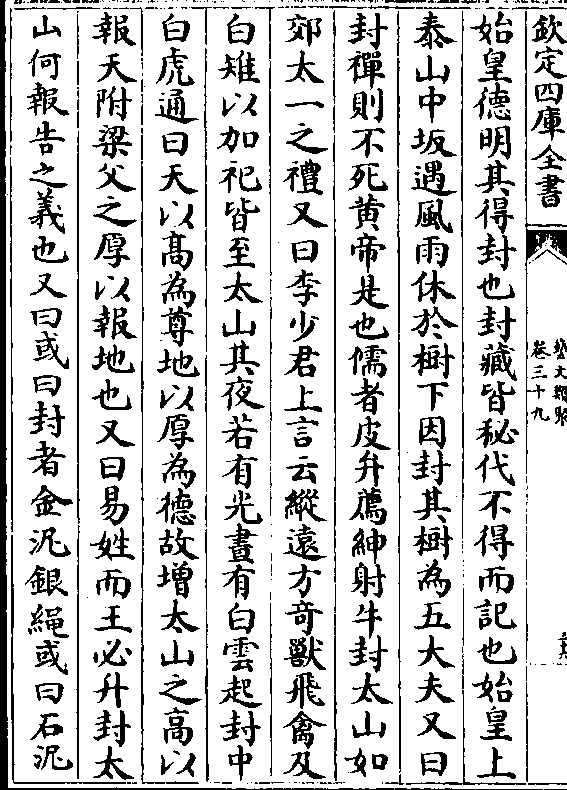 欽定四庫全書
藝文類聚
卷三十九
始皇德明其得封也封藏皆秘代不得而記也始皇上
泰山中坂遇風雨休於樹下因封其樹為五大夫又曰
封禪則不死黄帝是也儒者皮弁薦紳射牛封太山如
郊太一之禮又曰李少君上言云縱遠方竒獸飛禽及
白雉以加祀皆至太山其夜若有光晝有白雲起封中
白虎通曰天以髙為尊地以厚為德故增太山之高以
報天附梁父之厚以報地也又曰易姓而王必升封太
山何報告之義也又曰或曰封者金泥銀繩或曰石泥